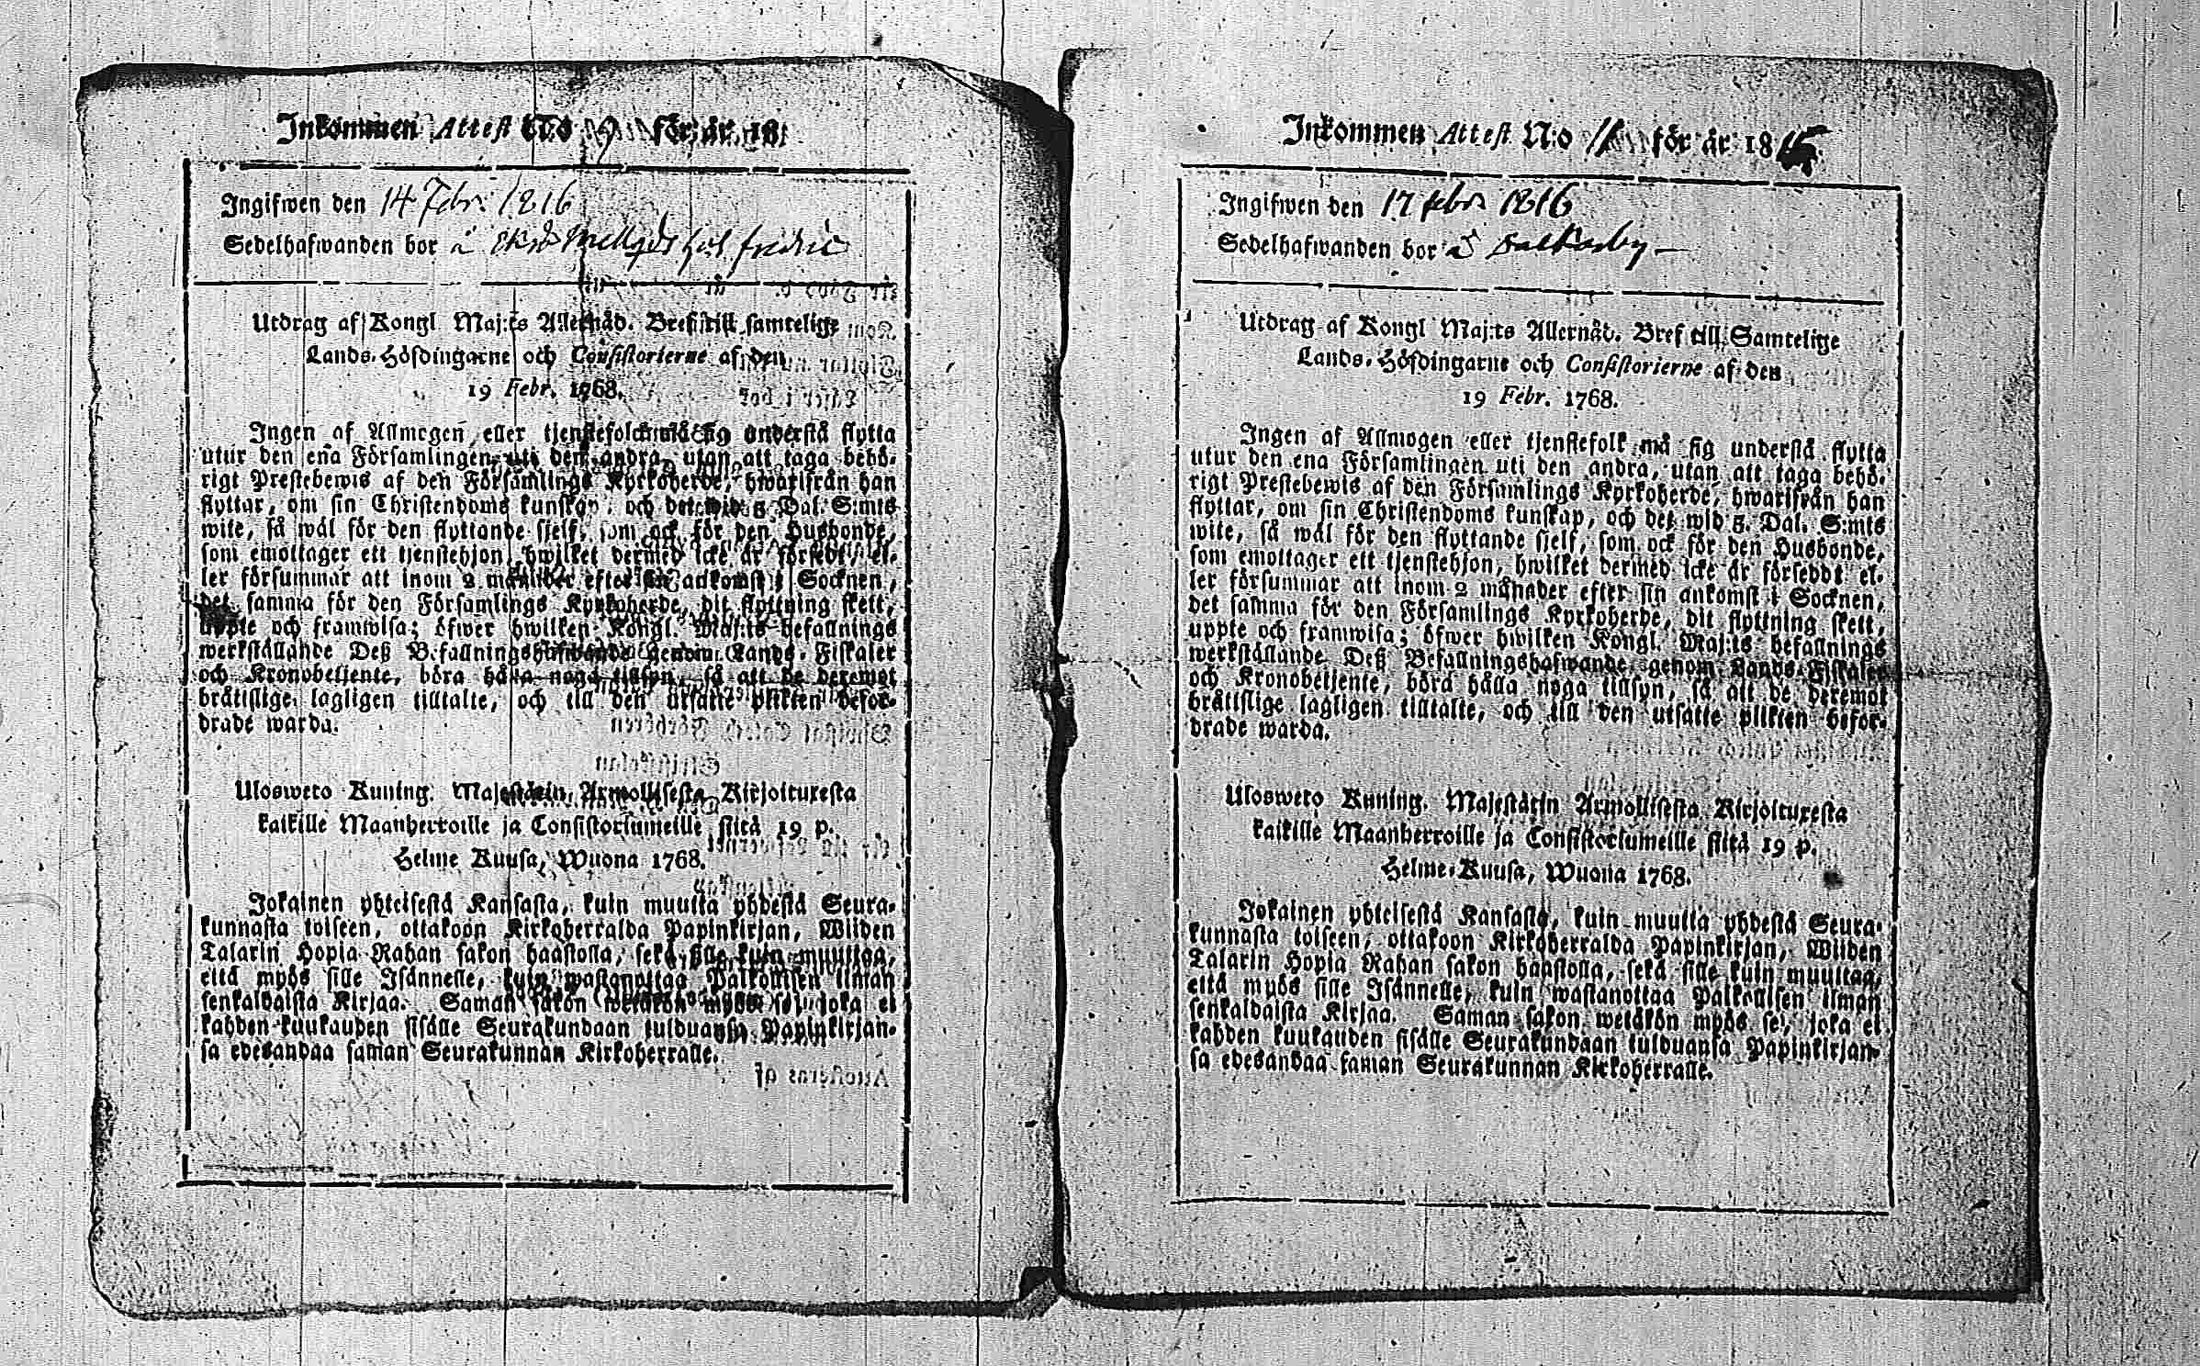 Inkommen Attest N:o 9 för år 18
Ingifwen den 14 Febr. 1816
Sedelhafwanden bor å
Utdrag af Kongl Maj:ts Allernåd. Bref till samtelige
Lands-Höfdingarne och Consistorierne af den
19 Febr. 1768.
Ingen af Allmogen eller tjenstefolck må sig understå flytta
utur den ena Församlingen uti den andra, utan att taga behö-
rigt Prestebewis af den Församlings Kyrkoherde, hwarifrån han
flyttar, om sin Christendoms kunskap, och det wid 5 Dal. S:mts
wite, så wäl för den flyttande sjelf, som ock för den Husbonde,
som emottager ett tjenstehjon, hwilket dermed icke är försedt el-
ler försummar att inom 2 månader efter sin ankomst i Socknen,
det samma för den Församlings Kyrkoherde, dit flyttning skett,
uppte och framwisa; öfwer hwilken Kongl. Maj:ts befallnings
werkställande Deß Befallningshafwande genom Lands-Fiskaler
och Kronobetjente, böra hålla noga tillsyn, så att de deremot
bråttslige lagligen tilltalte, och till den utsatte plikten befor-
drade warda.
Ulosweto Kuning. Majestätin Armollisesta Kirjoituxesta
kaikille Maanherroille ja Consistoriumeille siitä 19 p.
Helme Kuusa, Wuona 1768.
Jokainen yhteisestä Kansasta, kuin muutta yhdestä Seura-
kunnasta toiseen, ottakoon Kirkoherralda Papinkirjan, Wiiden
Talarin Hopia Rahan sakon haastolla, sekä sille kuin muuttaa,
että myös sille Isännelle, kuin wastanottaa Palkollisen ilman
senkaldaista Kirjaa. Saman sakon wetäkön myös se, joka ei
kahden kuukauden sisälle Seurakundaan tulduansa Papinkirjan-
sa edesandaa saman Seurakunnan Kirkoherralle.
Inkommen Attest N:o 11 för år 18
Ingifwen den 17 febr 1816
Sedelhafwanden bor
Utdrag af Kongl Maj:ts Allernåd. Bref till Samtelige
Lands-Höfdingarne och Consistorierne af den
19 Febr. 1768.
Ingen af Allmogen eller tjenstefolk må sig understå flytta
utur den ena Församlingen uti den andra, utan att taga behö-
rigt Prestebewis af den Församlings Kyrkoherde, hwarifrån han
flyttar, om sin Christendoms kunskap, och det wid 5. Dal. S:mts
wite, så wäl för den flyttande sjelf, som ock för den Husbonde,
som emottager ett tjenstehjon, hwilket dermed icke är förseddt el-
ler försummar att inom 2 månader efter sin ankomst i Socknen,
det samma för den Församlings Kyrkoherde, dit flyttning skett,
uppte och framwisa; öfwer hwilken Kongl. Maj:ts befallnings
werkställande Deß Befallningshafwande genom Lands-Fiskaler
och Kronobetjente, böra hålla noga tillsyn, så att de deremot
bråttslige lagligen tilltalte, och till den utsatte plikten befor-
drade warda.
Ulosweto Kuning. Majestätin Armollisesta Kirjoituxesta
kaikille Maanherroille ja Consistoriumeille siitä 19 p.
Helme-Kuusa, Wuona 1768.
Jokainen yhteisestä Kansasta, kuin muutta yhdestä Seura-
kunnasta toiseen, ottakoon Kirkoherralda Papinkirjan, Wiiden
Talarin Hopia Rahan sakon haastolla, sekä sille kuin muuttaa,
että myös sille Isännelle, kuin wastanottaa Palkollisen ilman
senkaldaista Kirjaa. Saman sakon wetäkön myös se, joka ei
kahden kuukauden sisälle Seurakundaan tulduansa Papinkirjan-
sa edesandaa saman Seurakunnan Kirkoherralle.